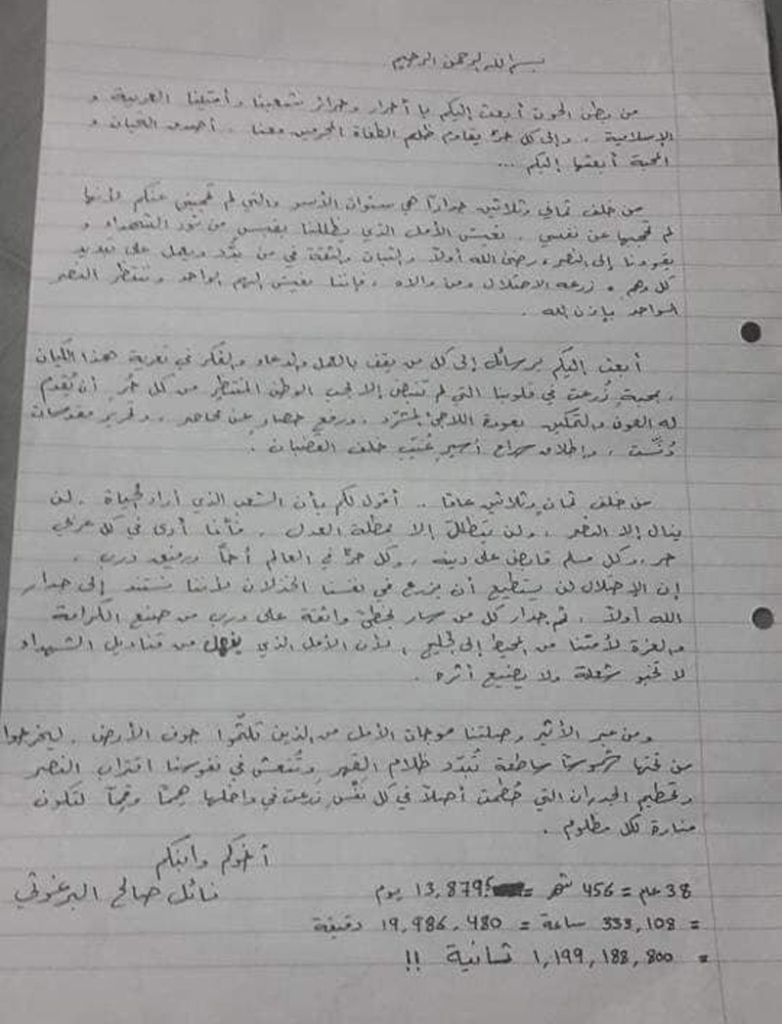 بسم الله الرحمن الرحيم
من بطن الحوت أبعث إليكم يا أحرار وحرائر شعبنا وأمتنا العربية و
الإسلامية . وإلى كل حرٍ يقاوم ظلم الطغاة المجرمين معنا . أصدق التحيات و
المحبة أبعثها إليكم ...
من خلف ثماني وثلاثين جدارًا هي سنوات الأسر والتي لم تحجبني عنكم لأنها
لم تحجبها عن نفسي . نعيش الأمل الذي يظللنا بقبس من نور الشهداء و
يقودنا إلى النصر ، رضى الله أولاً والثبات والثقة في من بدّد ويعمل على تبديد
كل وهم زرعه الاحتلال ومن والاه ، فإننا نعيش الهم الواحد وننتظر النصر
الواحد بإذن الله .
أبعث إليكم برسائل إلى كل من يقف بالعمل والدعاء والفكر في تعرية هذا الكيان
، بمحبةٍ زُرعت في قلوبنا التي لم تنبض إلا بحب الوطن المنتظر من كل حُر أن يُقدم
له العون والتمكين بعودة اللاجئ المشرد ، ورفع حصار عن محاصر ، وتحرير مقدسات
دُنّست ، وإطلاق سراح أسير غُيّب خلف القضبان .
من خلف ثمان وثلاثين عامًا .. أقول لكم بأن الشعب الذي أراد الحياة . لن
ينال إلا النصر ، ولن يتظلل إلا بمظلة العدل . فأنا أرى في كل عربي
حر ، وكل مسلم قابض على دينه ، وكل حرٍّ في العالم أخًا ورفيق درب .
إن الإحتلال لن يستطيع أن يزرع في نفسنا الخذلان لأننا نستند إلى جدار
الله أولاً . ثم جدار كل من سار بخطىً واثقة على درب من صنع الكرامة
والعزة لأمتنا من المحيط إلى الخليج ، لأن الأمل الذي ينهل من قناديل الشهداء
لا تخبو شعلة ولا يضيع أثره .
ومن عبر الأثير وصلتنا موجات الأمل من الذين جوف الأرض . ليخرجوا
من تحتها شموسًا ساطعة تُبدّد ظلام القهر وتُنعش في نفوسنا اقتراب النصر
وتحطيم الجدران التي حُطمت أصلاً في كل نَفْس زرعت في داخلها همًّا وقممًا لتكون
منارة لكل مظلوم .
أخوكم وابنكم
نائل صالح البرغوثي
38 عام = 456 شهر = 13,879 يوم
= 333,108 ساعة = 19,986,480 دقيقة
= 1,199,188,800 ثانية !!